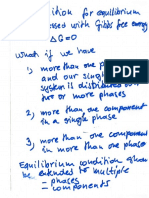 ndition for equilibrium
essed with Gibbs free energy
ΔG=0
What if we have
1, more than one p
and our sing
system is distributed
two or more phases
2, more than one component
in a single phase
3, more than one component
in more than one phase
Equilibrium condition
be extended to multiple
- phases
- components